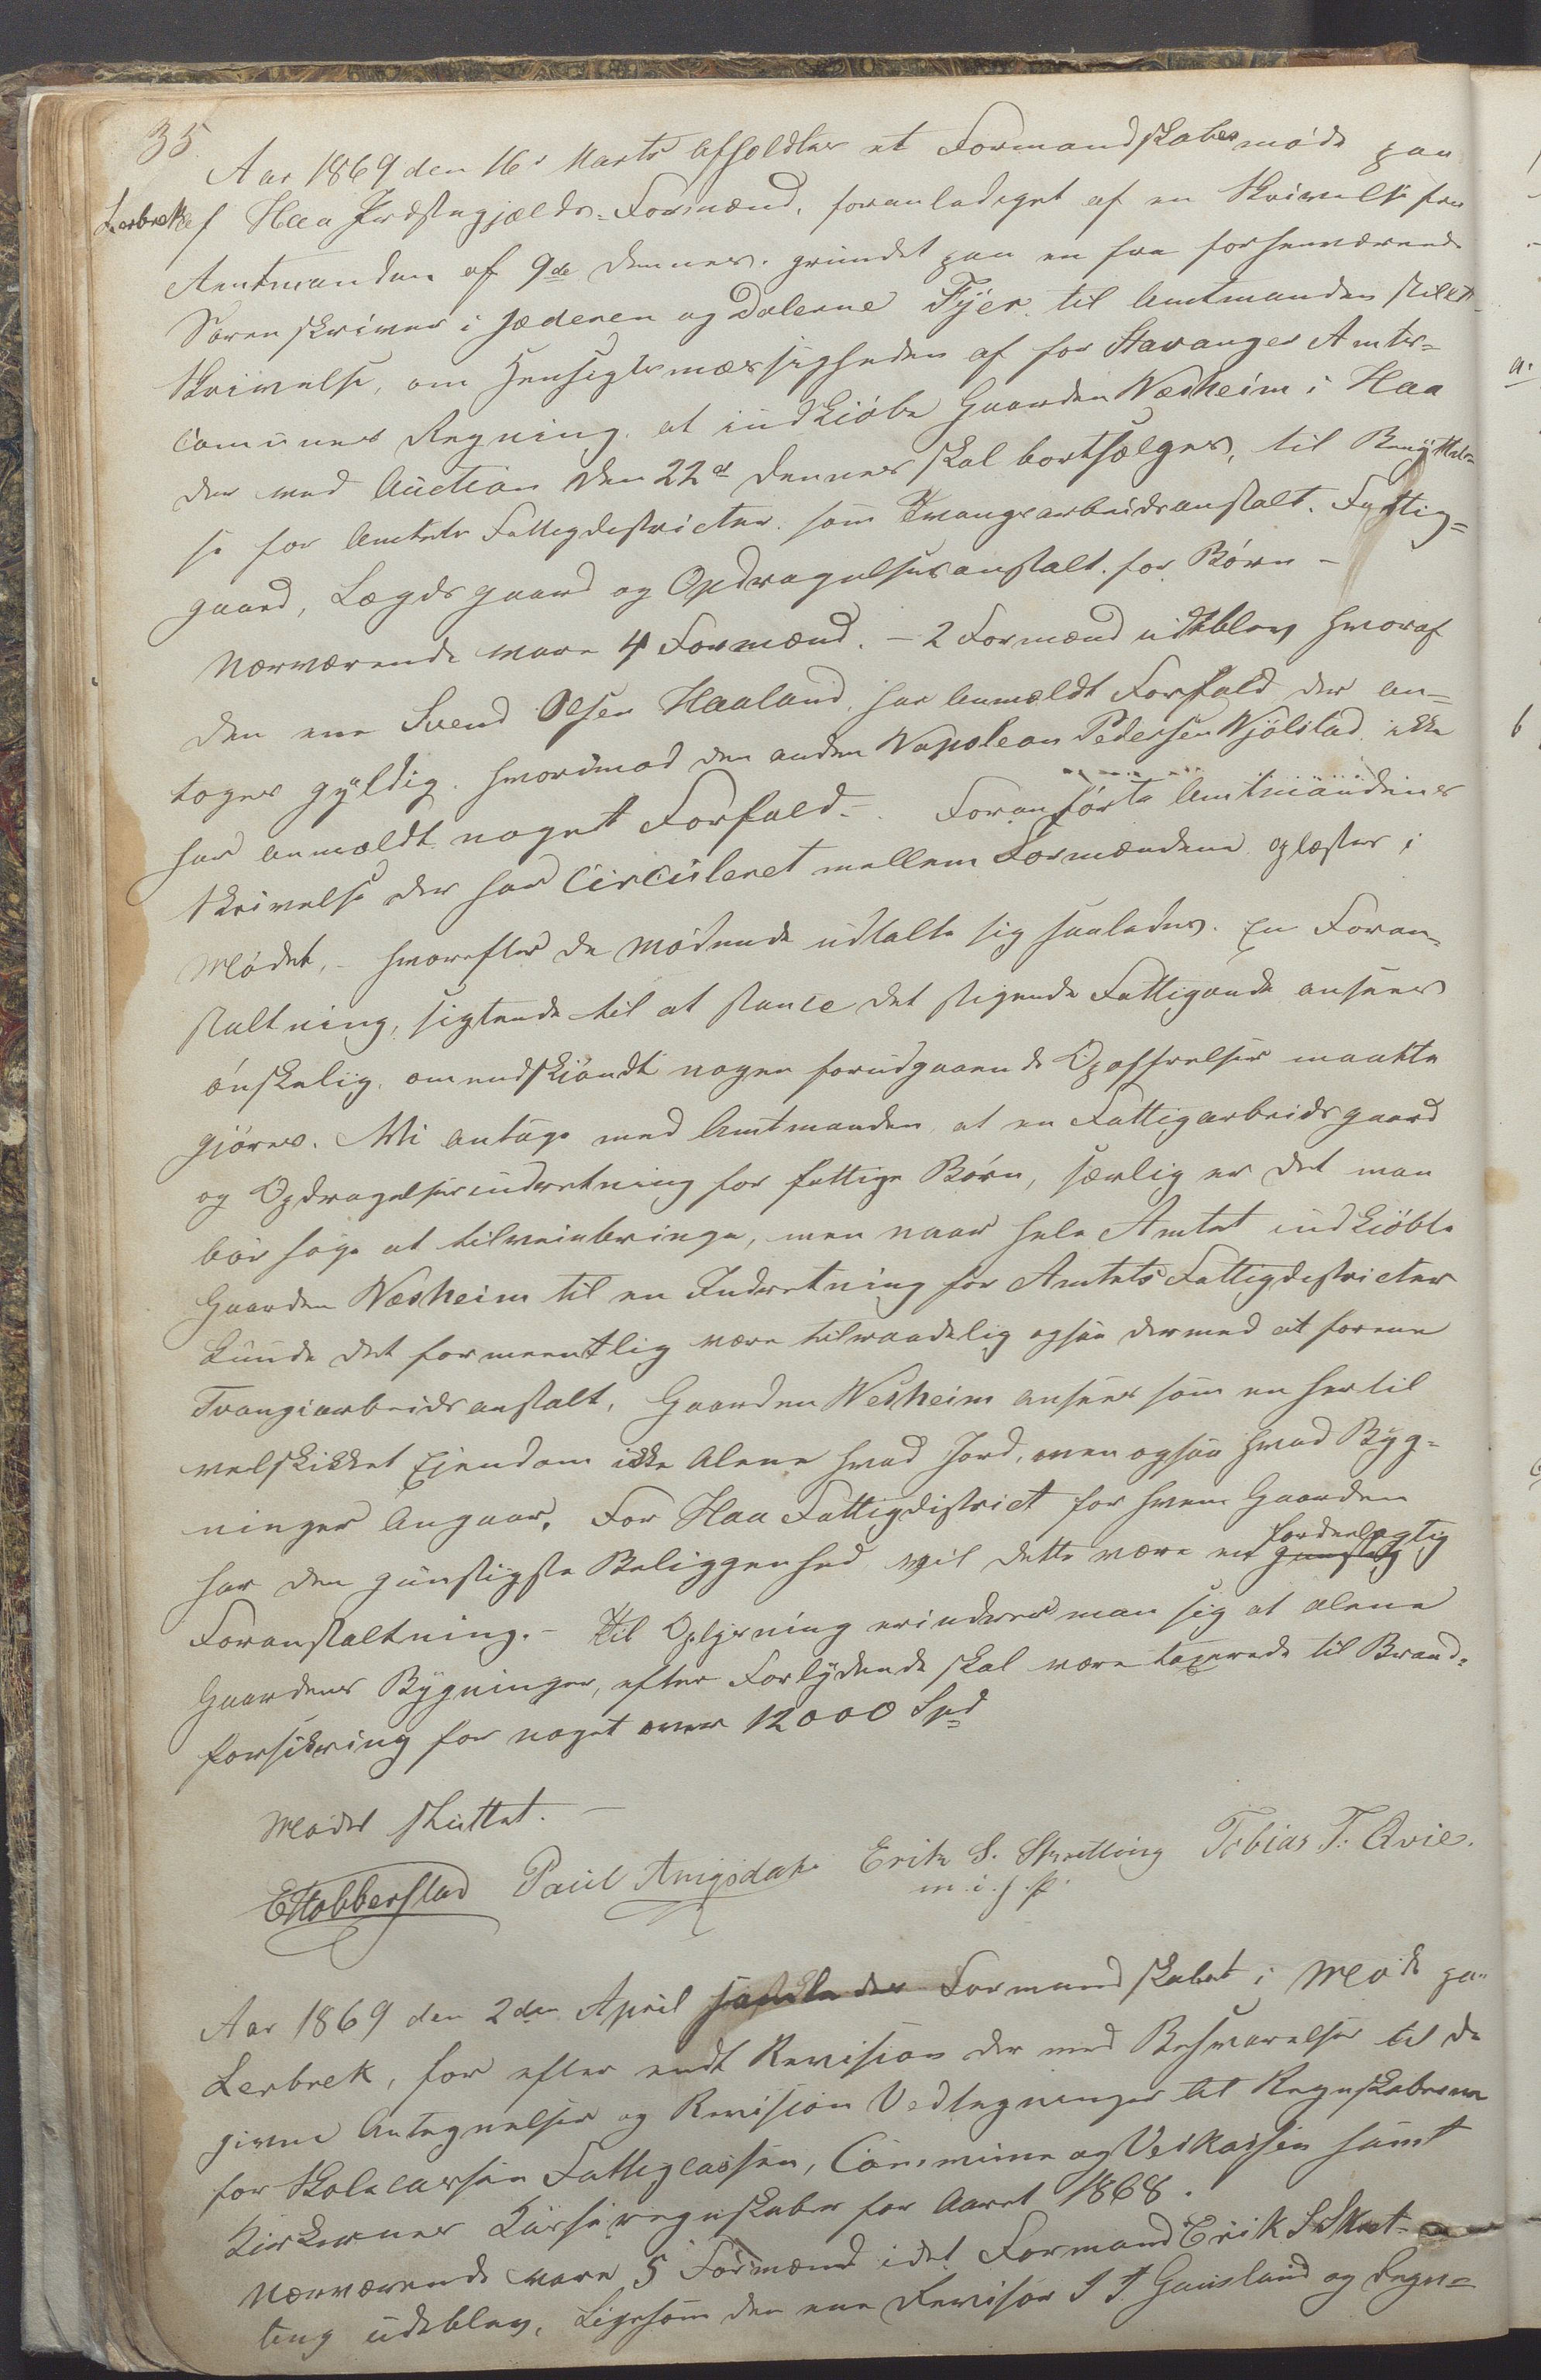 35
Aar 1869 den 16de Marts afholdtes et Formandskabsmøde paa
Lerbrek af Haa Præstegjælds-Formænd, foranlediget af en Skrivelse fra
Amtmanden af 9de dennes, grundet paa en fra forhenværende
Sorenskriver i Jæderen og Dalerne Fÿer til Amtmanden stillet
Skrivelse, om Hensigtsmæssigheden af for Stavanger Amts-
Comunes Regning at indkiöbe Gaarden Næsheim i Haa
der ved Auction den 22de dennes skal bortsælges, til Benÿttel-
se for Amtets Fattigdistricter som Tvangsarbeidsanstalt. Fattig-
gaard, Lægdsgaard og Opdragelsesanstalt for Börn -
Nærværende vare 4 Formænd. - 2 Formænd udeblev hvoraf
den ene Svend Olsen Haaland har anmældt Forfald der an-
toges gÿldig, hvorimod den anden Napoleon Pedersen Njölstad ikke
har anmældt noget Forfald. - Foranförte Amtmandens
Skrivelse der har Circuleret mellem Formændene oplæstes i
Mödet, - hvorefter de mödende udtalte sig saaledes. En Foran-
staltning, sigtende til at stanse det stigende Fattigonde ansees
önskelig, omendskiöndt nogen forudgaaende Opoffrelser maatte
gjöres. Vi antage med Amtmanden at en Fattigarbeidsgaard
og Opdragelsesindretning for fattige Börn, særlig er det man
bör söge at tilveiebringe, men naar hele Amtet indkiöbte
Gaarden Næsheim til en Indretning for Amtets Fattigdistricter
kunde det formeentlig være tilraadelig ogsaa dermed at forene
Tvangsarbeidsanstalt. Gaarden Nesheim ansees som en hertil
velskikket Eiendom ikke alene hvad Jord, men ogsaa hvad Byg-
ninger angaar. For Haa Fattigdistrict for hvem Gaarden
har den gunstigste Beliggenhed vil dette være en gunstig fordeelagtig
Foranstaltning. - Til Oplysning erindrer man sig at alene
Gaardens Bygninger, efter Forlydende skal være taxerede til Brand-
forsikring for noget over 12000 Spd
Mödet sluttet. -
E Hobberstad Paul Aniksdal Erik S. Skretting Tobias T. Qvie.
m. i. f. P.
Aar 1869 den 2den April samledes Formandskabet i Möde paa
Lerbrek, for efter endt Revision der med Besvarelser til de
givne Antegnelser og Revision Vedtegninger til Regnskaberne
for Skolecassen Fattigcassen, Commune og Veikassen samt
Kirkernes Kasseregnskaber for Aaret 1868.
Nærværende vare 5 Formænd idet Formand Erik S Skret-
ting udeblev, Ligesom den ene Revisor J J. Gausland og Regn-